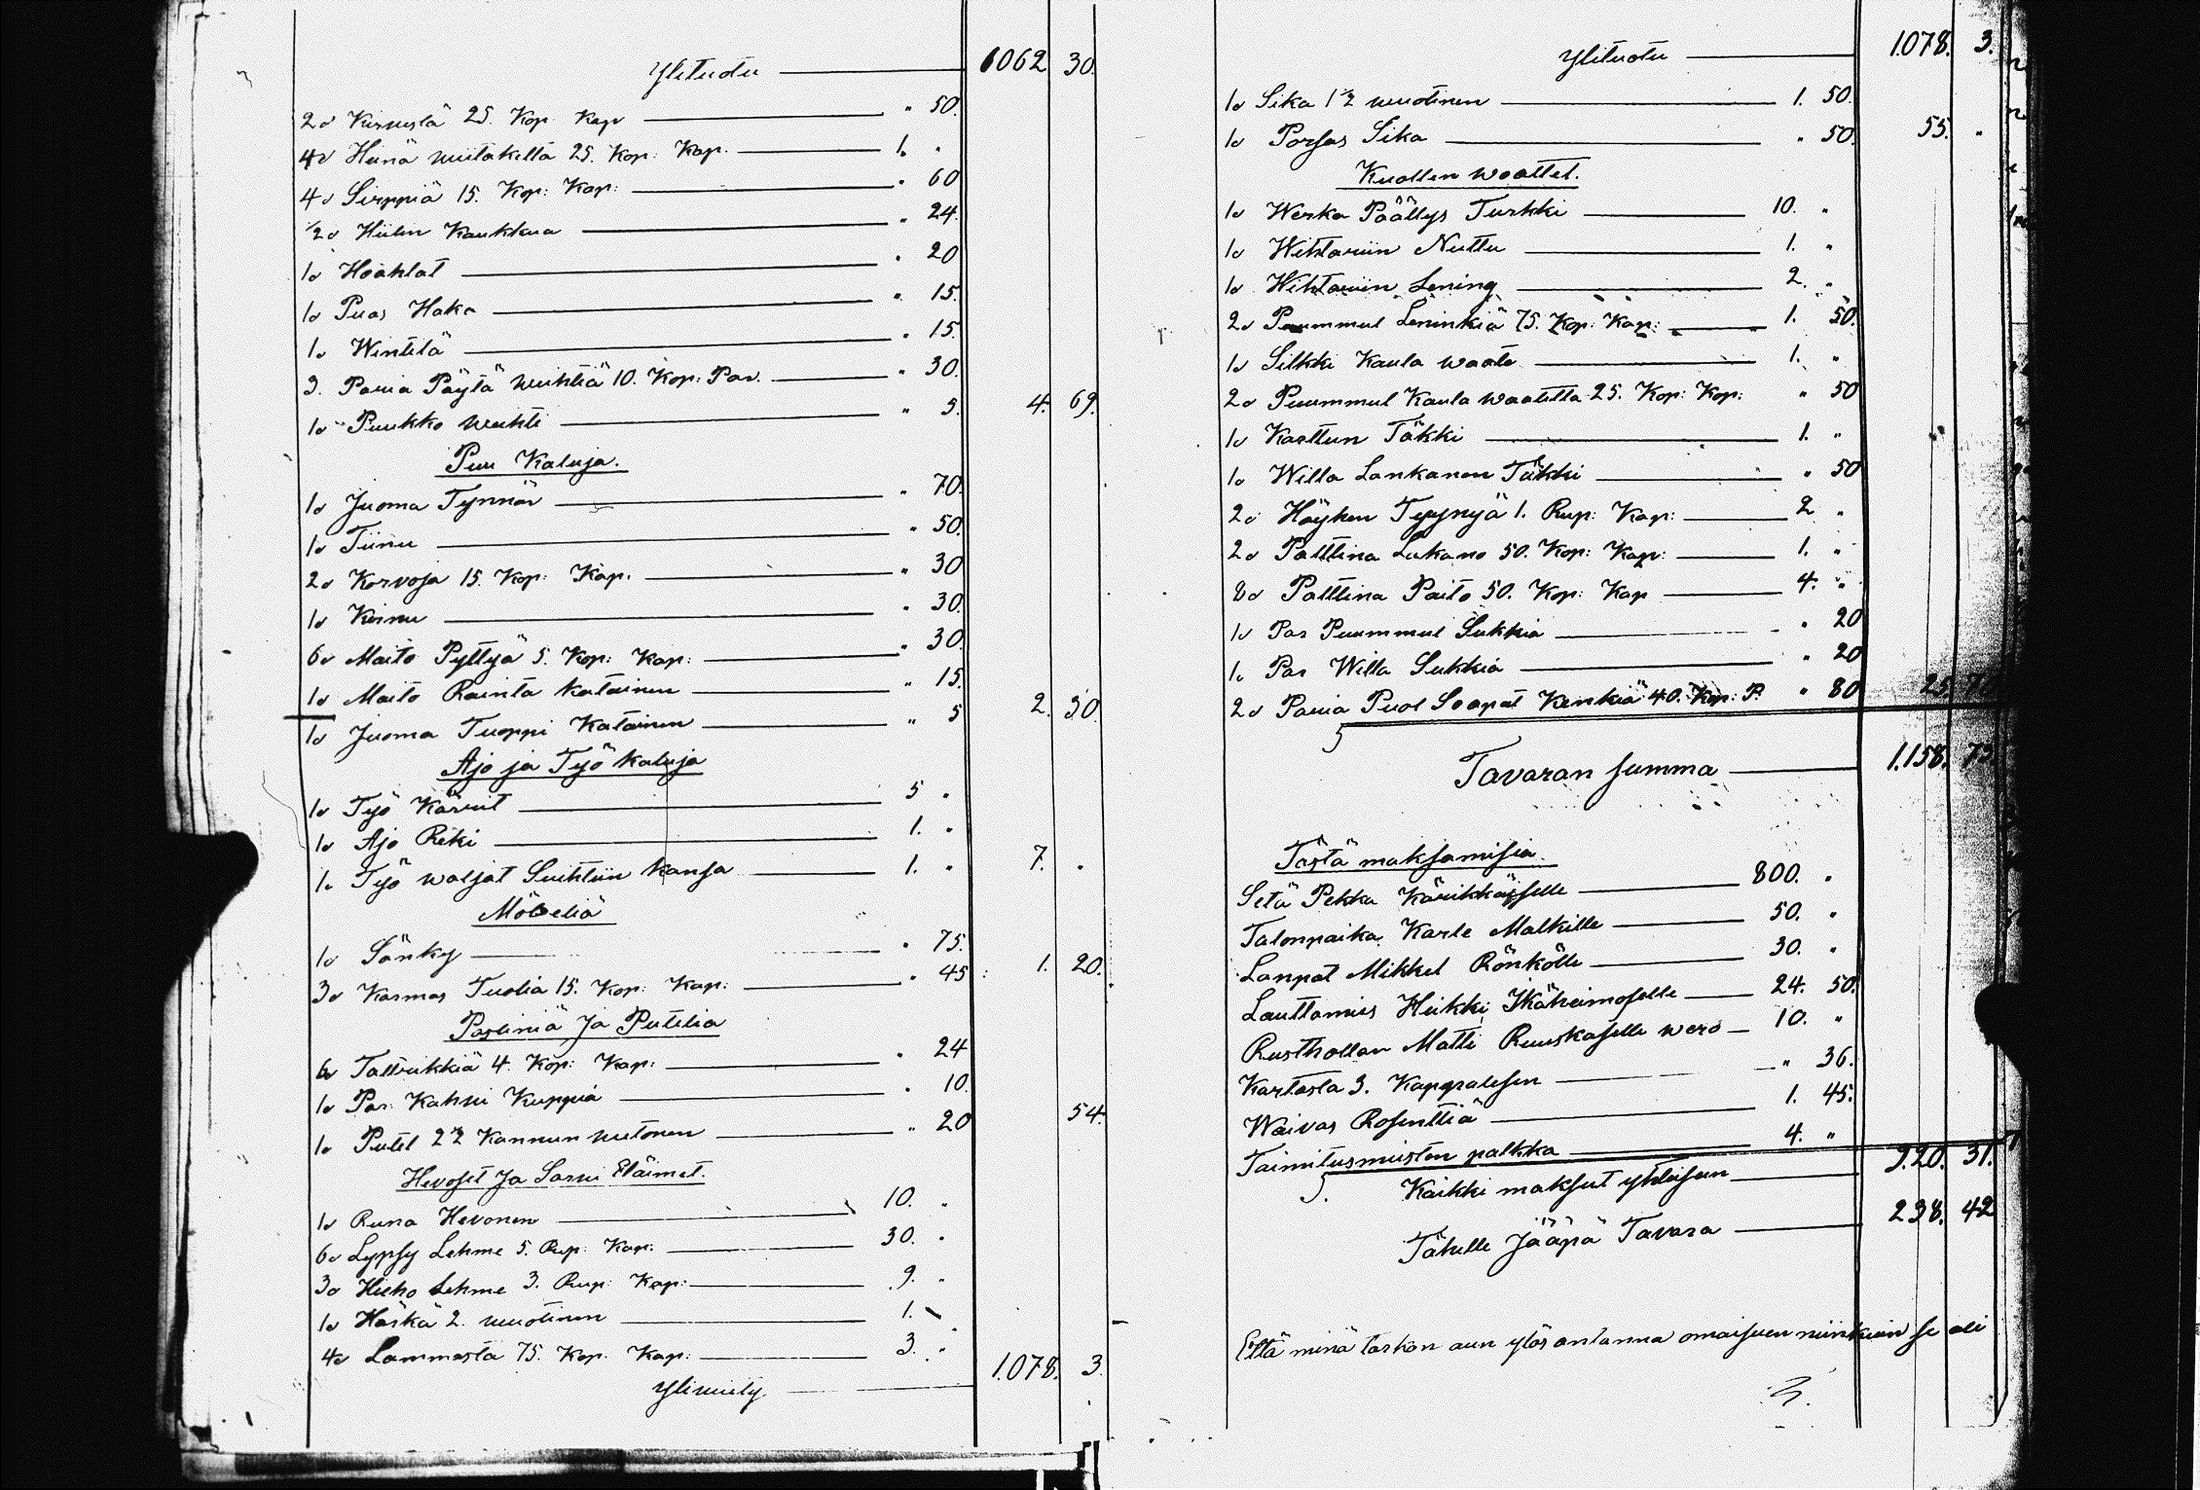 Ylituotu 1062 30.
2d Kirvestä 25. Kop. Kap " 50.
4d Heinä wiitaketta 25. Kop: Kap. 1. "
4d Sirppiä 15. Kop: Kap: " 60
1/2d Hiilen Kaukkua " 24.
1d Hoahlat " 20
1d Puas Haka " 15.
1d Wintilä " 15.
3. Paria Pöytä weihtiä 10. Kop: Par. " 30.
1d Puukko weihti " 5. 4. 69.
Puu Kaluja.
1d Juoma Tynnör " 70.
1d Tiinu " 50.
2d Korvoja 15. Kop: Kap. " 30
1d Kirnu " 30.
6d Maito Pyttyä 5. Kop: Kap: " 30.
1d Maito Rainta katainen " 15.
1d Juoma Tuoppi Katainen " 5 2. 30.
Ajo ja Työ kaluja
1d Työ Kärrit 5 "
1d Ajo Reki 1. "
1d Työ waljat Suihtiin kansa 1. " 7. "
Möbeliä
1d Sänky " 75.
3d Karmas Tuolia 15. Kop: Kap: " 45 1. 20.
Posliniä Ja Putelia
6d Tallrikkiä 4. Kop: Kap: " 24
1d Par Kahwi Kuppia " 10
1d Putel 2 1/2 Kannun wetonen " 20 54.
Hevoset Ja Sarwi Eläimet.
1d Runa Hevonen 10. "
6d Lypsy Lehme 5. Rup: Kap: 30. "
3d Hieho Lehme 3. Rup: Kap: 9. "
1d Härkä 2. wuotinen 1. "
4d Lammasta 75. Kop. Kap: 3. "
Ylimiety 1.078. 3.
Ylituotu 1.078. 3.
1d Sika 1 1/2 wuotinen 1. 50.
1d Porsas Sika " 50. 55. "
Kuollen waattet.
1d Werka Päällys Turkki 10. "
1d Wihtariin Nuttu 1. "
1d Wihtariin Lening 2. "
2d Puummul Leninkiä 75. Kop: Kap: 1. 50.
1d Silkki Kaula waate 1. "
2d Puummul Kaula waatetta 25. Kop: Kap: " 50
1d Karttun Täkki 1. "
1d Willa Lankanen Täkki " 50
2d Höyhen Tyynyä 1. Rup: Kap: 2 "
2d Palttina Lakano 50. Kop: Kap: 1. "
8d Palttina Paito 50. Kop: Kap 4. "
1d Par Puummul Sukkia " 20
1d Par Willa Sukkia " 20
2d Paria Puol Saapat Kenkiä 40. Kop: P. " 80 25. 70
Tavaran summa 1.158. 73.
Tästä maksamisia.
Setä Pekka Kärikkäiselle 800. "
Talonpaika Karle Malkille 50. "
Lanpat Mikkel Rönkölle 30. "
Lauttamies Heikki Ikäheimoselle 24. 50.
Rusthollan Matti Ruuskaselle wero 10. "
Kartasta 3. Kappralesen " 36.
Waivas Rosenttiä 1. 45.
Taimitusmiesten palkka 4. "
Kaikki maksut yhteisen 920. 31.
Tähelle Jääpä Tavara 238. 42
Että minä tarkan aun ylös antanna omaisuen niinkuin se oli